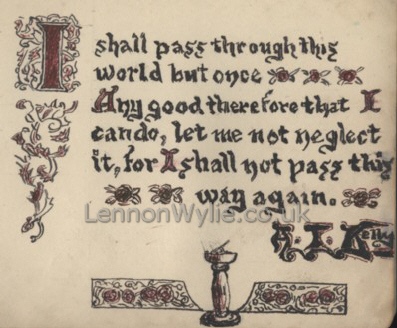 I shall pass through this
world but once
Any good therefore that I
can do, let me not neglect
it, for I shall not pass this
way again.
LennonWylie.co.uk
Kelly